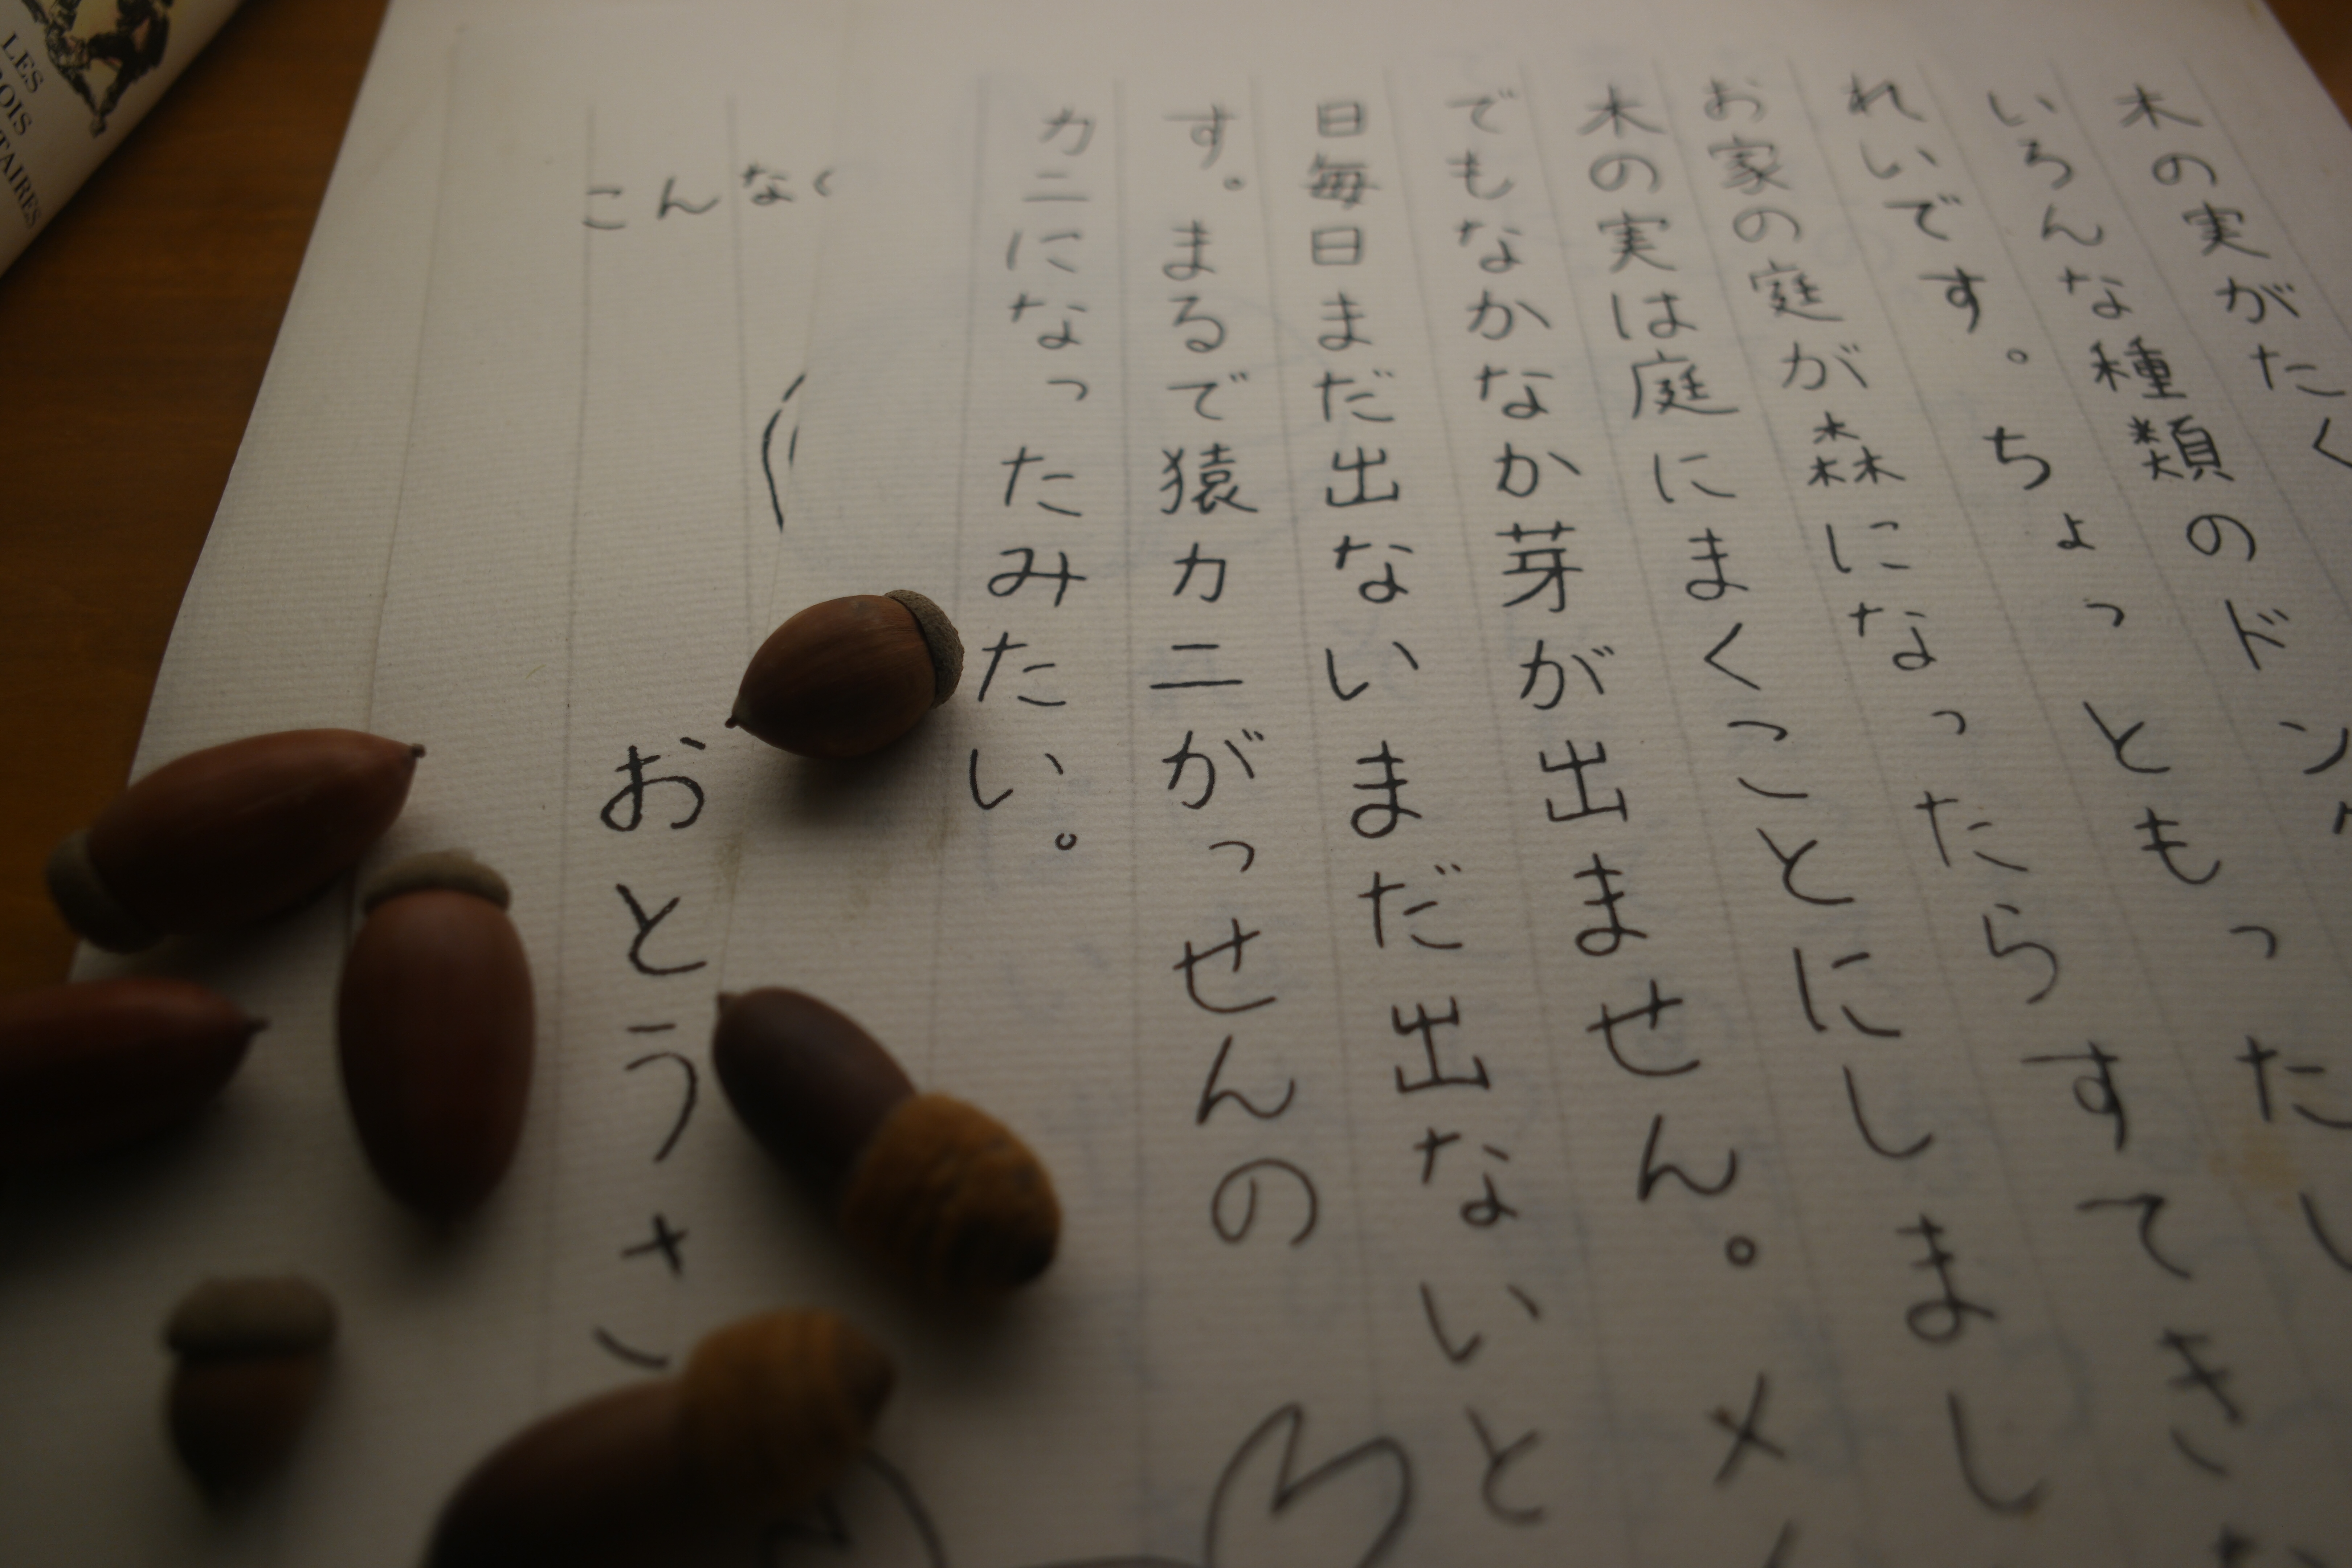 木の実がたく
いろんな種類のドング
れいです。ちょっともったし
お家の庭が森になったらすてき
木の実は庭にまくことにしまし
でもなかなか芽が出ません。メ
日毎日まだ出ないまだ出ないと
す。まるで猿カニがっせんの
カニになったみたい。
おとうさ
こんなく
LES
TAIRES